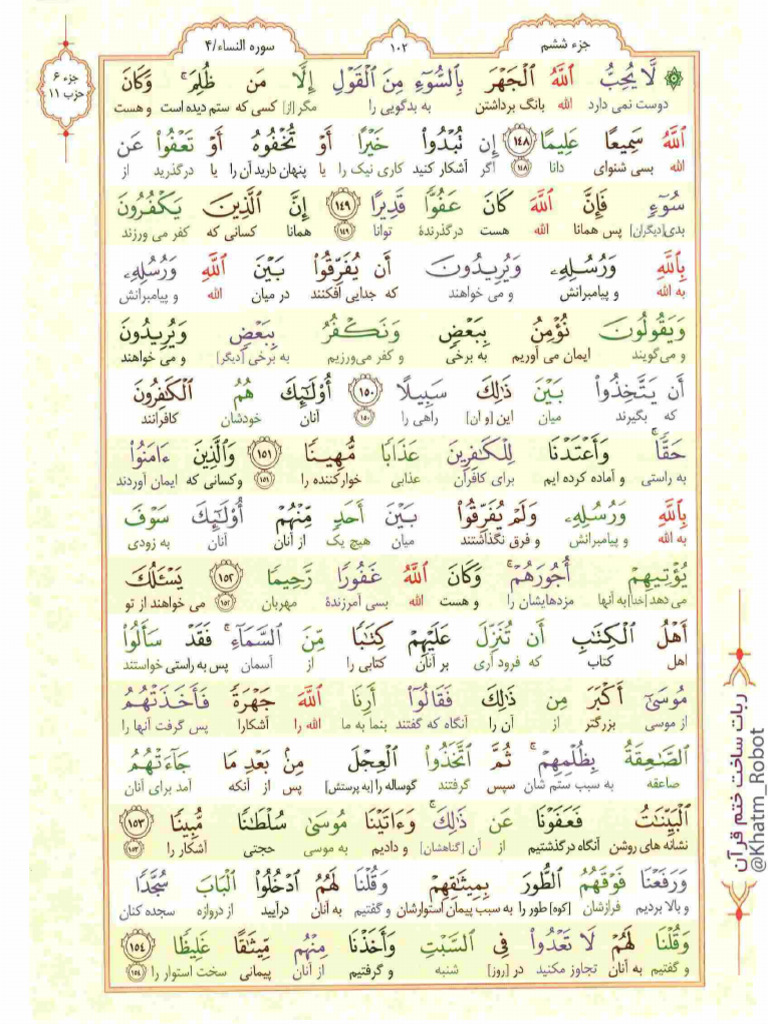 جزء ششم
۱۰۲
سوره النساء/۴
جزء ۶
حزب ۱۱
لَّا يُحِبُّ ٱللَّهُ ٱلْجَهْرَ بِٱلسُّوٓءِ مِنَ ٱلْقَوْلِ إِلَّا مَن ظُلِمَ ۚ وَكَانَ
دوست نمی دارد الله بانگ برداشتن به بدگویی را مگر [از] کسی که ستم دیده است و هست
ٱللَّهُ سَمِيعًا عَلِيمًا ۱۴۸ إِن تُبْدُوا۟ خَيْرًا أَوْ تُخْفُوهُ أَوْ تَعْفُوا۟ عَن
الله بسی شنوای دانا ۱۴۸ اگر آشکار کنید کاری نیک را یا پنهان دارید آن را یا درگذرید از
سُوٓءٍ فَإِنَّ ٱللَّهَ كَانَ عَفُوًّا قَدِيرًا ۱۴۹ إِنَّ ٱلَّذِينَ يَكْفُرُونَ
بدی [دیگران] پس همانا الله هست درگذرندهٔ توانا ۱۴۹ همانا کسانی که کفر می ورزند
بِٱللَّهِ وَرُسُلِهِۦ وَيُرِيدُونَ أَن يُفَرِّقُوا۟ بَيْنَ ٱللَّهِ وَرُسُلِهِۦ
به الله و پیامبرانش و می خواهند که جدایی افکنند در میان الله و پیامبرانش
وَيَقُولُونَ نُؤْمِنُ بِبَعْضٍ وَنَكْفُرُ بِبَعْضٍ وَيُرِيدُونَ
و می‌گویند ایمان می آوریم به برخی و کفر می‌ورزیم به برخی [دیگر] و می خواهند
أَن يَتَّخِذُوا۟ بَيْنَ ذَٰلِكَ سَبِيلًا ۱۵۰ أُو۟لَٰٓئِكَ هُمُ ٱلْكَٰفِرُونَ
که بگیرند میان این [و آن] راهی را ۱۵۰ آنان خودشان کافرانند
حَقًّا ۚ وَأَعْتَدْنَا لِلْكَٰفِرِينَ عَذَابًا مُّهِينًا ۱۵۱ وَٱلَّذِينَ ءَامَنُوا۟
به راستی و آماده کرده ایم برای کافران عذابی خوارکننده را ۱۵۱ و کسانی که ایمان آوردند
بِٱللَّهِ وَرُسُلِهِۦ وَلَمْ يُفَرِّقُوا۟ بَيْنَ أَحَدٍ مِّنْهُمْ أُو۟لَٰٓئِكَ سَوْفَ
به الله و پیامبرانش و فرق نگذاشتند میان هیچ یک از آنان آنان به زودی
يُؤْتِيهِمْ أُجُورَهُمْ ۗ وَكَانَ ٱللَّهُ غَفُورًا رَّحِيمًا ۱۵۲ يَسْـَٔلُكَ
می دهد [خدا] به آنها مزدهایشان را و هست الله بسی آمرزندهٔ مهربان ۱۵۲ می خواهند از تو
أَهْلُ ٱلْكِتَٰبِ أَن تُنَزِّلَ عَلَيْهِمْ كِتَٰبًا مِّنَ ٱلسَّمَآءِ ۚ فَقَدْ سَأَلُوا۟
اهل کتاب که فرود آری بر آنان کتابی را از آسمان پس به راستی خواستند
مُوسَىٰٓ أَكْبَرَ مِن ذَٰلِكَ فَقَالُوٓا۟ أَرِنَا ٱللَّهَ جَهْرَةً فَأَخَذَتْهُمُ
از موسی بزرگتر از آن را آنگاه که گفتند بنما به ما الله را آشکارا پس گرفت آنها را
ٱلصَّٰعِقَةُ بِظُلْمِهِمْ ۚ ثُمَّ ٱتَّخَذُوا۟ ٱلْعِجْلَ مِنۢ بَعْدِ مَا جَآءَتْهُمُ
صاعقه به سبب ستم شان سپس گرفتند گوساله را [به پرستش] پس از آنکه آمد برای آنان
ٱلْبَيِّنَٰتُ فَعَفَوْنَا عَن ذَٰلِكَ ۚ وَءَاتَيْنَا مُوسَىٰ سُلْطَٰنًا مُّبِينًا ۱۵۳
نشانه های روشن آنگاه درگذشتیم از آن [گناهشان] و دادیم به موسی حجتی آشکار را ۱۵۳
وَرَفَعْنَا فَوْقَهُمُ ٱلطُّورَ بِمِيثَٰقِهِمْ وَقُلْنَا لَهُمُ ٱدْخُلُوا۟ ٱلْبَابَ سُجَّدًا
و بالا بردیم فرازشان [کوه] طور را به سبب پیمان استوارشان و گفتیم به آنان درآیید از دروازه سجده کنان
وَقُلْنَا لَهُمْ لَا تَعْدُوا۟ فِى ٱلسَّبْتِ وَأَخَذْنَا مِنْهُم مِّيثَٰقًا غَلِيظًا ۱۵۴
و گفتیم به آنان تجاوز مکنید در [روز] شنبه و گرفتیم از آنان پیمانی سخت استوار را ۱۵۴
ربات ساخت ختم قرآن
@Khatm_Robot